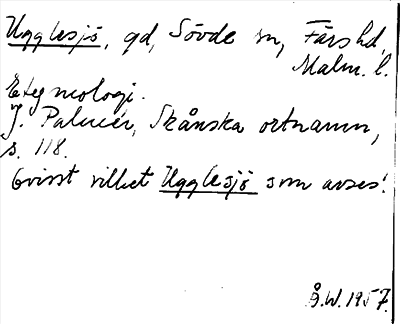 Ugglesjö, gd, Sövde sn, Färs hd,
Malm. l.
Etymologi.
J. Palmér, Skånska ortnamn,
s. 118.
Ovisst vilket Ugglesjö som avses!
Å.W. 1957.